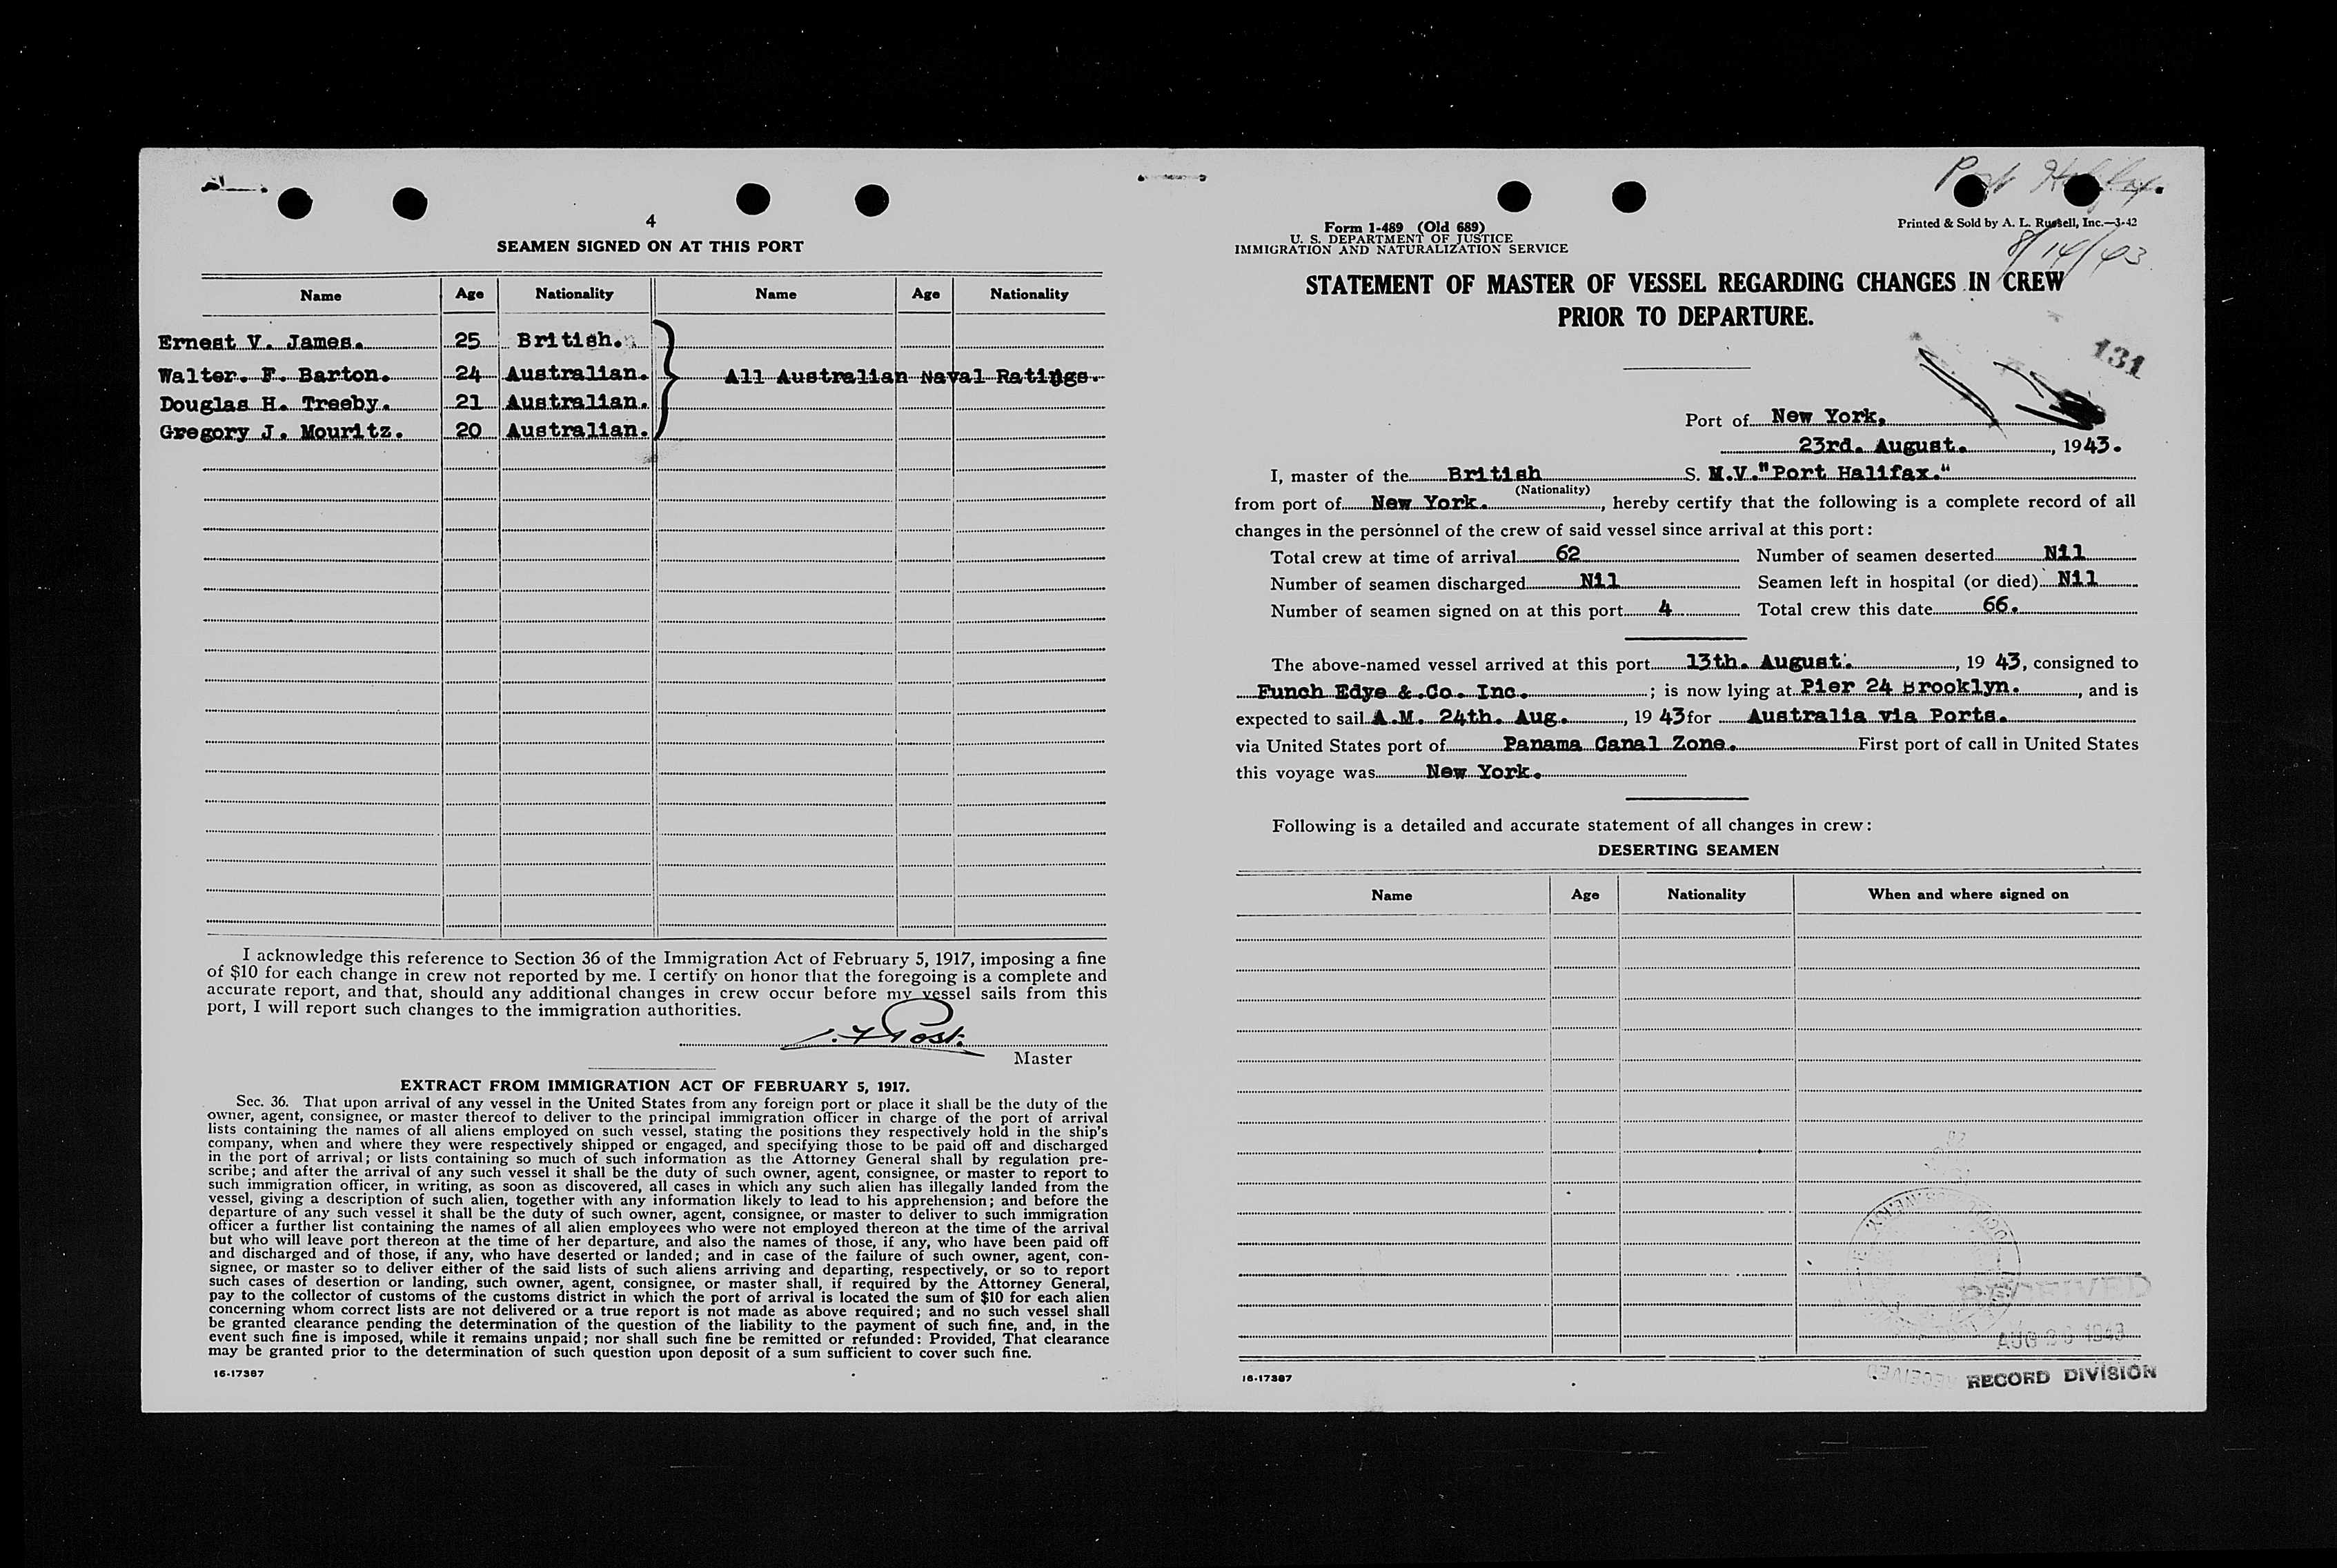 4
SEAMEN SIGNED ON AT THIS PORT
Name Age Nationality Name Age Nationality
Ernest V. James. 25 British.
Walter. F. Barton. 24 Australian. All Australian Naval Ratings.
Douglas H. Treeby. 21 Australian.
Gregory J. Mouritz. 20 Australian.
I acknowledge this reference to Section 36 of the Immigration Act of February 5, 1917, imposing a fine
of $10 for each change in crew not reported by me. I certify on honor that the foregoing is a complete and
accurate report, and that, should any additional changes in crew occur before my vessel sails from this
port, I will report such changes to the immigration authorities.
Post.
Master
EXTRACT FROM IMMIGRATION ACT OF FEBRUARY 5, 1917.
Sec. 36. That upon arrival of any vessel in the United States from any foreign port or place it shall be the duty of the
owner, agent, consignee, or master thereof to deliver to the principal immigration officer in charge of the port of arrival
lists containing the names of all aliens employed on such vessel, stating the positions they respectively hold in the ship's
company, when and where they were respectively shipped or engaged, and specifying those to be paid off and discharged
in the port of arrival; or lists containing so much of such information as the Attorney General shall by regulation pre-
scribe; and after the arrival of any such vessel it shall be the duty of such owner, agent, consignee, or master to report to
such immigration officer, in writing, as soon as discovered, all cases in which any such alien has illegally landed from the
vessel, giving a description of such alien, together with any information likely to lead to his apprehension; and before the
departure of any such vessel it shall be the duty of such owner, agent, consignee, or master to deliver to such immigration
officer a further list containing the names of all alien employees who were not employed thereon at the time of the arrival
but who will leave port thereon at the time of her departure, and also the names of those, if any, who have been paid off
and discharged and of those, if any, who have deserted or landed; and in case of the failure of such owner, agent, con-
signee, or master so to deliver either of the said lists of such aliens arriving and departing, respectively, or so to report
such cases of desertion or landing, such owner, agent, consignee, or master shall, if required by the Attorney General,
pay to the collector of customs of the customs district in which the port of arrival is located the sum of $10 for each alien
concerning whom correct lists are not delivered or a true report is not made as above required; and no such vessel shall
be granted clearance pending the determination of the question of the liability to the payment of such fine, and, in the
event such fine is imposed, while it remains unpaid; nor shall such fine be remitted or refunded: Provided, That clearance
may be granted prior to the determination of such question upon deposit of a sum sufficient to cover such fine.
16-17387
Port Halifax.
Form 1-489 (Old 689)
U. S. DEPARTMENT OF JUSTICE
IMMIGRATION AND NATURALIZATION SERVICE
Printed & Sold by A. L. Russell, Inc.—3-42
8/14/43
STATEMENT OF MASTER OF VESSEL REGARDING CHANGES IN CREW
PRIOR TO DEPARTURE.
131
Port of New York,
23rd. August. , 1943.
I, master of the British S. M.V."Port Halifax."
(Nationality)
from port of New York. , hereby certify that the following is a complete record of all
changes in the personnel of the crew of said vessel since arrival at this port:
Total crew at time of arrival 62 Number of seamen deserted Nil
Number of seamen discharged Nil Seamen left in hospital (or died) Nil
Number of seamen signed on at this port 4 Total crew this date 66.
The above-named vessel arrived at this port 13th. August. , 19 43, consigned to
Funch Edye & Co. Inc. ; is now lying at Pier 24 Brooklyn. , and is
expected to sail A.M. 24th. Aug. , 19 43 for Australia via Ports.
via United States port of Panama Canal Zone. First port of call in United States
this voyage was New York.
Following is a detailed and accurate statement of all changes in crew:
DESERTING SEAMEN
Name Age Nationality When and where signed on
RECEIVED
AUG 1943
RECORD DIVISION
16-17387